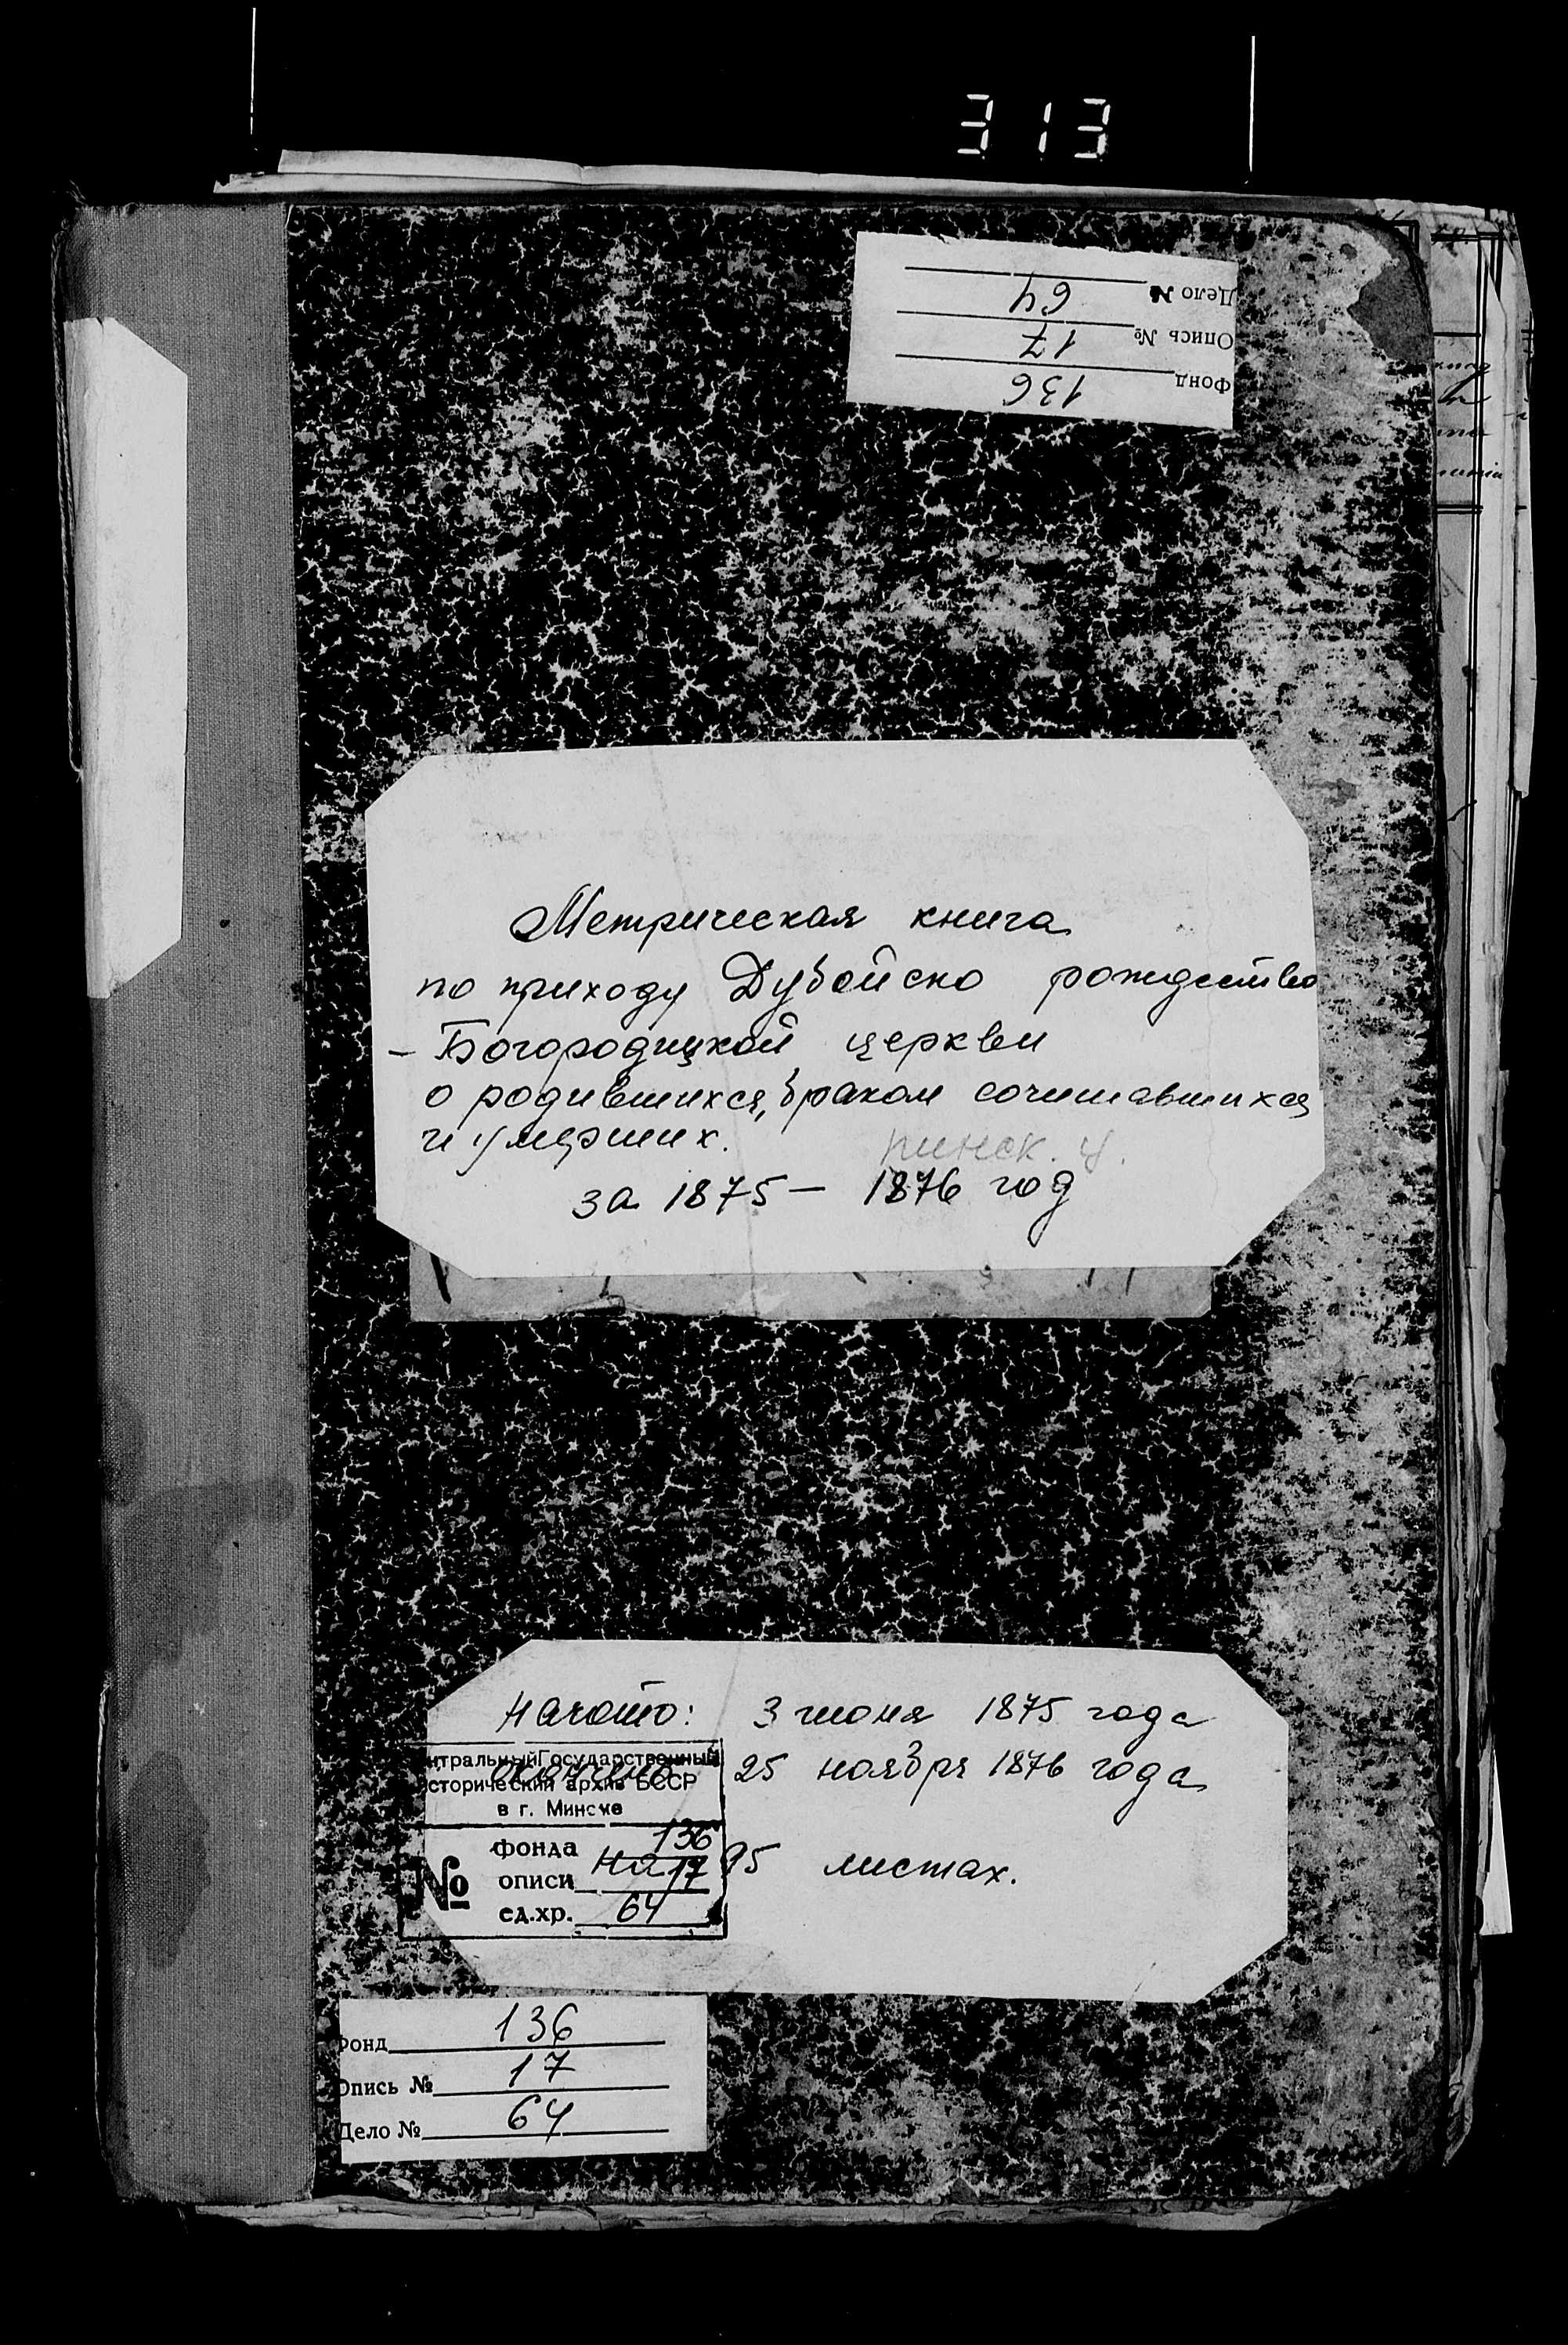 313
Дело № 64
Опись № 17
Фонд 136
Метрическая книга
по приходу Дубойско рождество
- Богородицкой церкви
о родившихся, браком сочитавшихся
и умерших.
пинск. у.
за 1875 – 1876 год
Начато: 3 июня 1875 года
окончено 25 ноября 1876 года
нтральный Государственный
сторический архив БССР
в г. Минске
на 95 листах.
№
фонда 136
описи 17
ед.хр. 64
Фонд 136
Опись № 17
Дело № 64